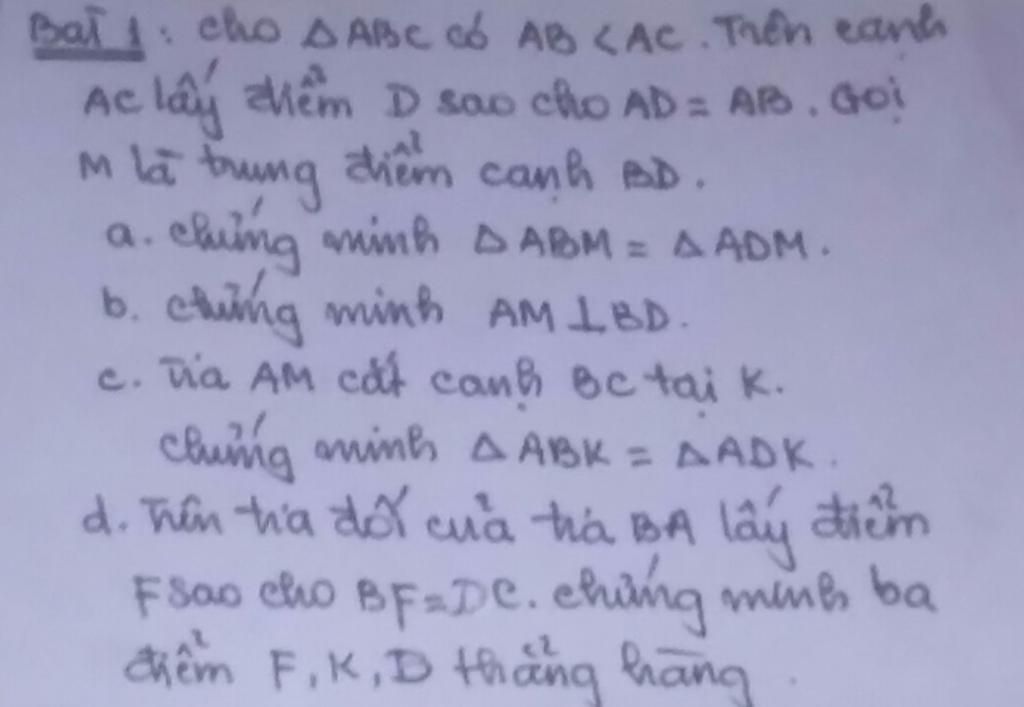 Bài 1: Cho △ABC có AB < AC. Trên cạnh
AC lấy điểm D sao cho AD = AB. Gọi
M là trung điểm cạnh BD.
a. Chứng minh △ABM = △ADM.
b. Chứng minh AM ⊥ BD.
c. Tia AM cắt cạnh BC tại K.
Chứng minh △ABK = △ADK.
d. Trên tia đối của tia BA lấy điểm
F sao cho BF = DC. Chứng minh ba
điểm F, K, D thẳng hàng.